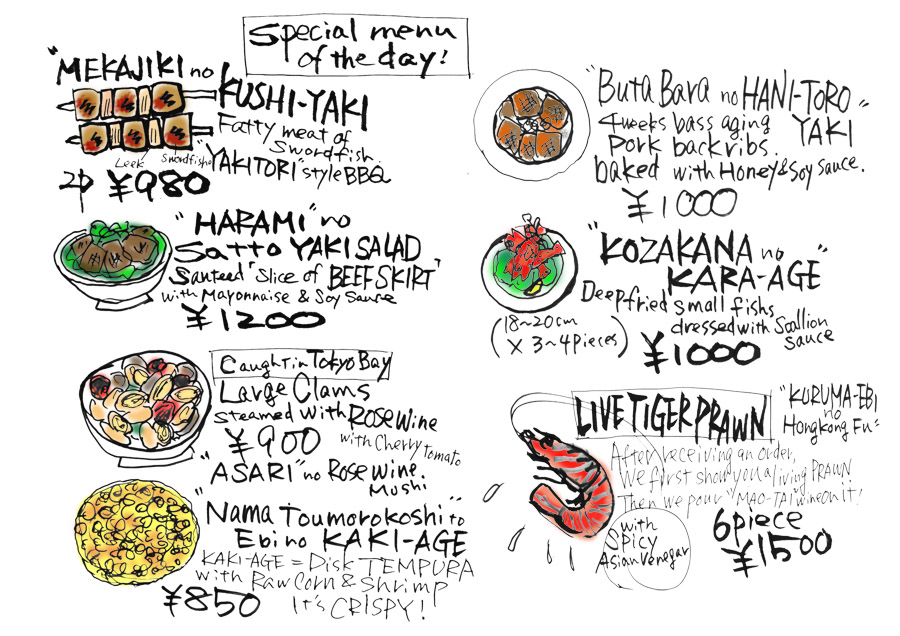 Special menu
of the day!
"MEKAJIKI no
KUSHI-YAKI
Fatty meat of
Swordfish.
Leek
Swordfish
"YAKITORI" style BBQ
2P ¥980
"HARAMI" no
Satto YAKI SALAD
Santeed "Slice of BEEF SKIRT"
with Mayonnaise & Soy Sauce
¥1200
Caught in Tokyo Bay
Large Clams
Steamed with Rose wine
with Cherry tomato
¥900
"ASARI" no Rose wine
Mushi
"Nama Toumorokoshi to
Ebi no KAKI-AGE"
KAKI-AGE = Disk TEMPURA
with Raw Corn & Shrimp
It's CRISPY!
¥850
"Buta Bara no HANI-TORO"
YAKI
4weeks bass aging
Pork backribs.
baked with Honey & Soy sauce.
¥1000
"KOZAKANA no
KARA-AGE"
Deepfried small fishs
dressed with Scallion
sauce
(18~20cm
× 3~4 pieces)
¥1000
LIVE TIGER PRAWN
"KURUMA-EBI
no
Hongkong Fu"
After receiving an order,
We first show you a living PRAWN!
Then we pour "MAO-TAI" wine on it!
with
Spicy
Asian venegar
6piece
¥1500